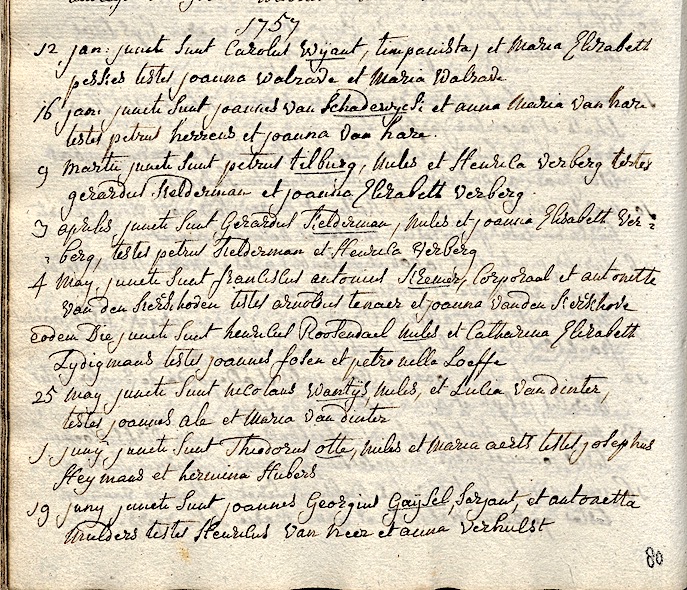 1757
12 jan: juncti sunt Carolus Wijant, timpanista, et Maria Elizabeth
peskes testes joanna walrave et Maria Walrave
16 jan: juncti sunt joannes van Schaderwyck et anna Maria van hare
testes petrus herreus et joanna van hare.
9 martii juncti sunt petrus tilburg, miles et Henrica Verberg testes
gerardus Kelderman et joanna Elizabeth Verberg.
3 aprilis juncti sunt Gerardus Kelderman, miles et joanna Elisabeth Ver=
= berg, testes petrus Kelderman et Henrica Verberg
4 may, juncti sunt franciscus antonius Kremer, Corporaal et antonette
van den Kerkhoven testes arnoldus tenaer et joanna vanden Kerkhove
eodem Die juncti sunt henricus Rootendael miles et Catharina Elizabeth
Lydigmans testes joannes fosen et petronella Loeffe
25 may juncti sunt nicolaus Wantijs miles, et Lucia van dinter,
testes joannes ale et Maria Van dinter
1. juny juncti sunt Theodorus otte, miles et Maria aerts testes josephus
Heymans et hermina Hubers
19 juny juncti sunt joannes Georgius Gaysel, Serjant, et antonetta
mulders testes Henricus van heer et anna verhulst
80